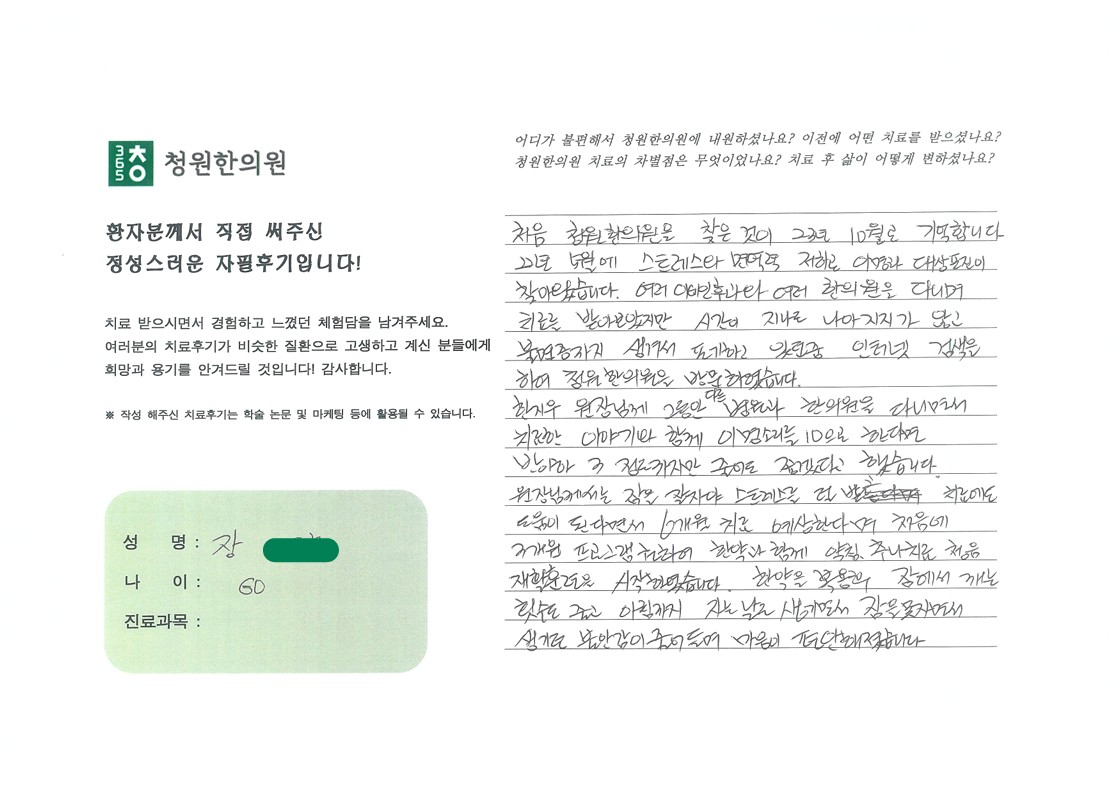 365 청
청원한의원
환자분께서 직접 써주신
정성스러운 자필후기입니다!
치료 받으시면서 경험하고 느꼈던 체험담을 남겨주세요.
여러분의 치료후기가 비슷한 질환으로 고생하고 계신 분들에게
희망과 용기를 안겨드릴 것입니다! 감사합니다.
※ 작성 해주신 치료후기는 학술 논문 및 마케팅 등에 활용될 수 있습니다.
성 명 : 장
나 이 : 60
진료과목 :
어디가 불편해서 청원한의원에 내원하셨나요? 이전에 어떤 치료를 받으셨나요?
청원한의원 치료의 차별점은 무엇이었나요? 치료 후 삶이 어떻게 변하셨나요?
처음 청원한의원을 찾은 것이 23년 10월로 기억합니다
22년 5월에 스트레스와 면역력 저하로 이명과 대상포진이
찾아왔습니다. 여러 이비인후과와 여러 한의원을 다니며
치료를 받아보았지만 시간이 지나도 나아지지가 않고
불면증까지 생겨서 포기하고 있던중 인터넷 검색을
하여 청원한의원을 방문하였습니다.
원장님께 그동안 다른 병원과 한의원을 다니면서
치료한 이야기와 함께 이명소리를 10으로 한다면
3 정도까지만 줄어도 좋겠다고 했습니다.
원장님께서는 잠을 잘자야 스트레스를 덜 치료에도
도움이 된다면서 6개월 치료 예상한다며 처음에
3개월 프로그램 한약과 함께 약침, 추나치료 청음
재활훈련을 시작하였습니다. 한약을 복용후 잠에서 깨는
횟수도 줄고 아침까지 자는 날도 생기면서 잠을 못자면서
생기는 불안감이 줄어들며 마음이 편안해졌습니다